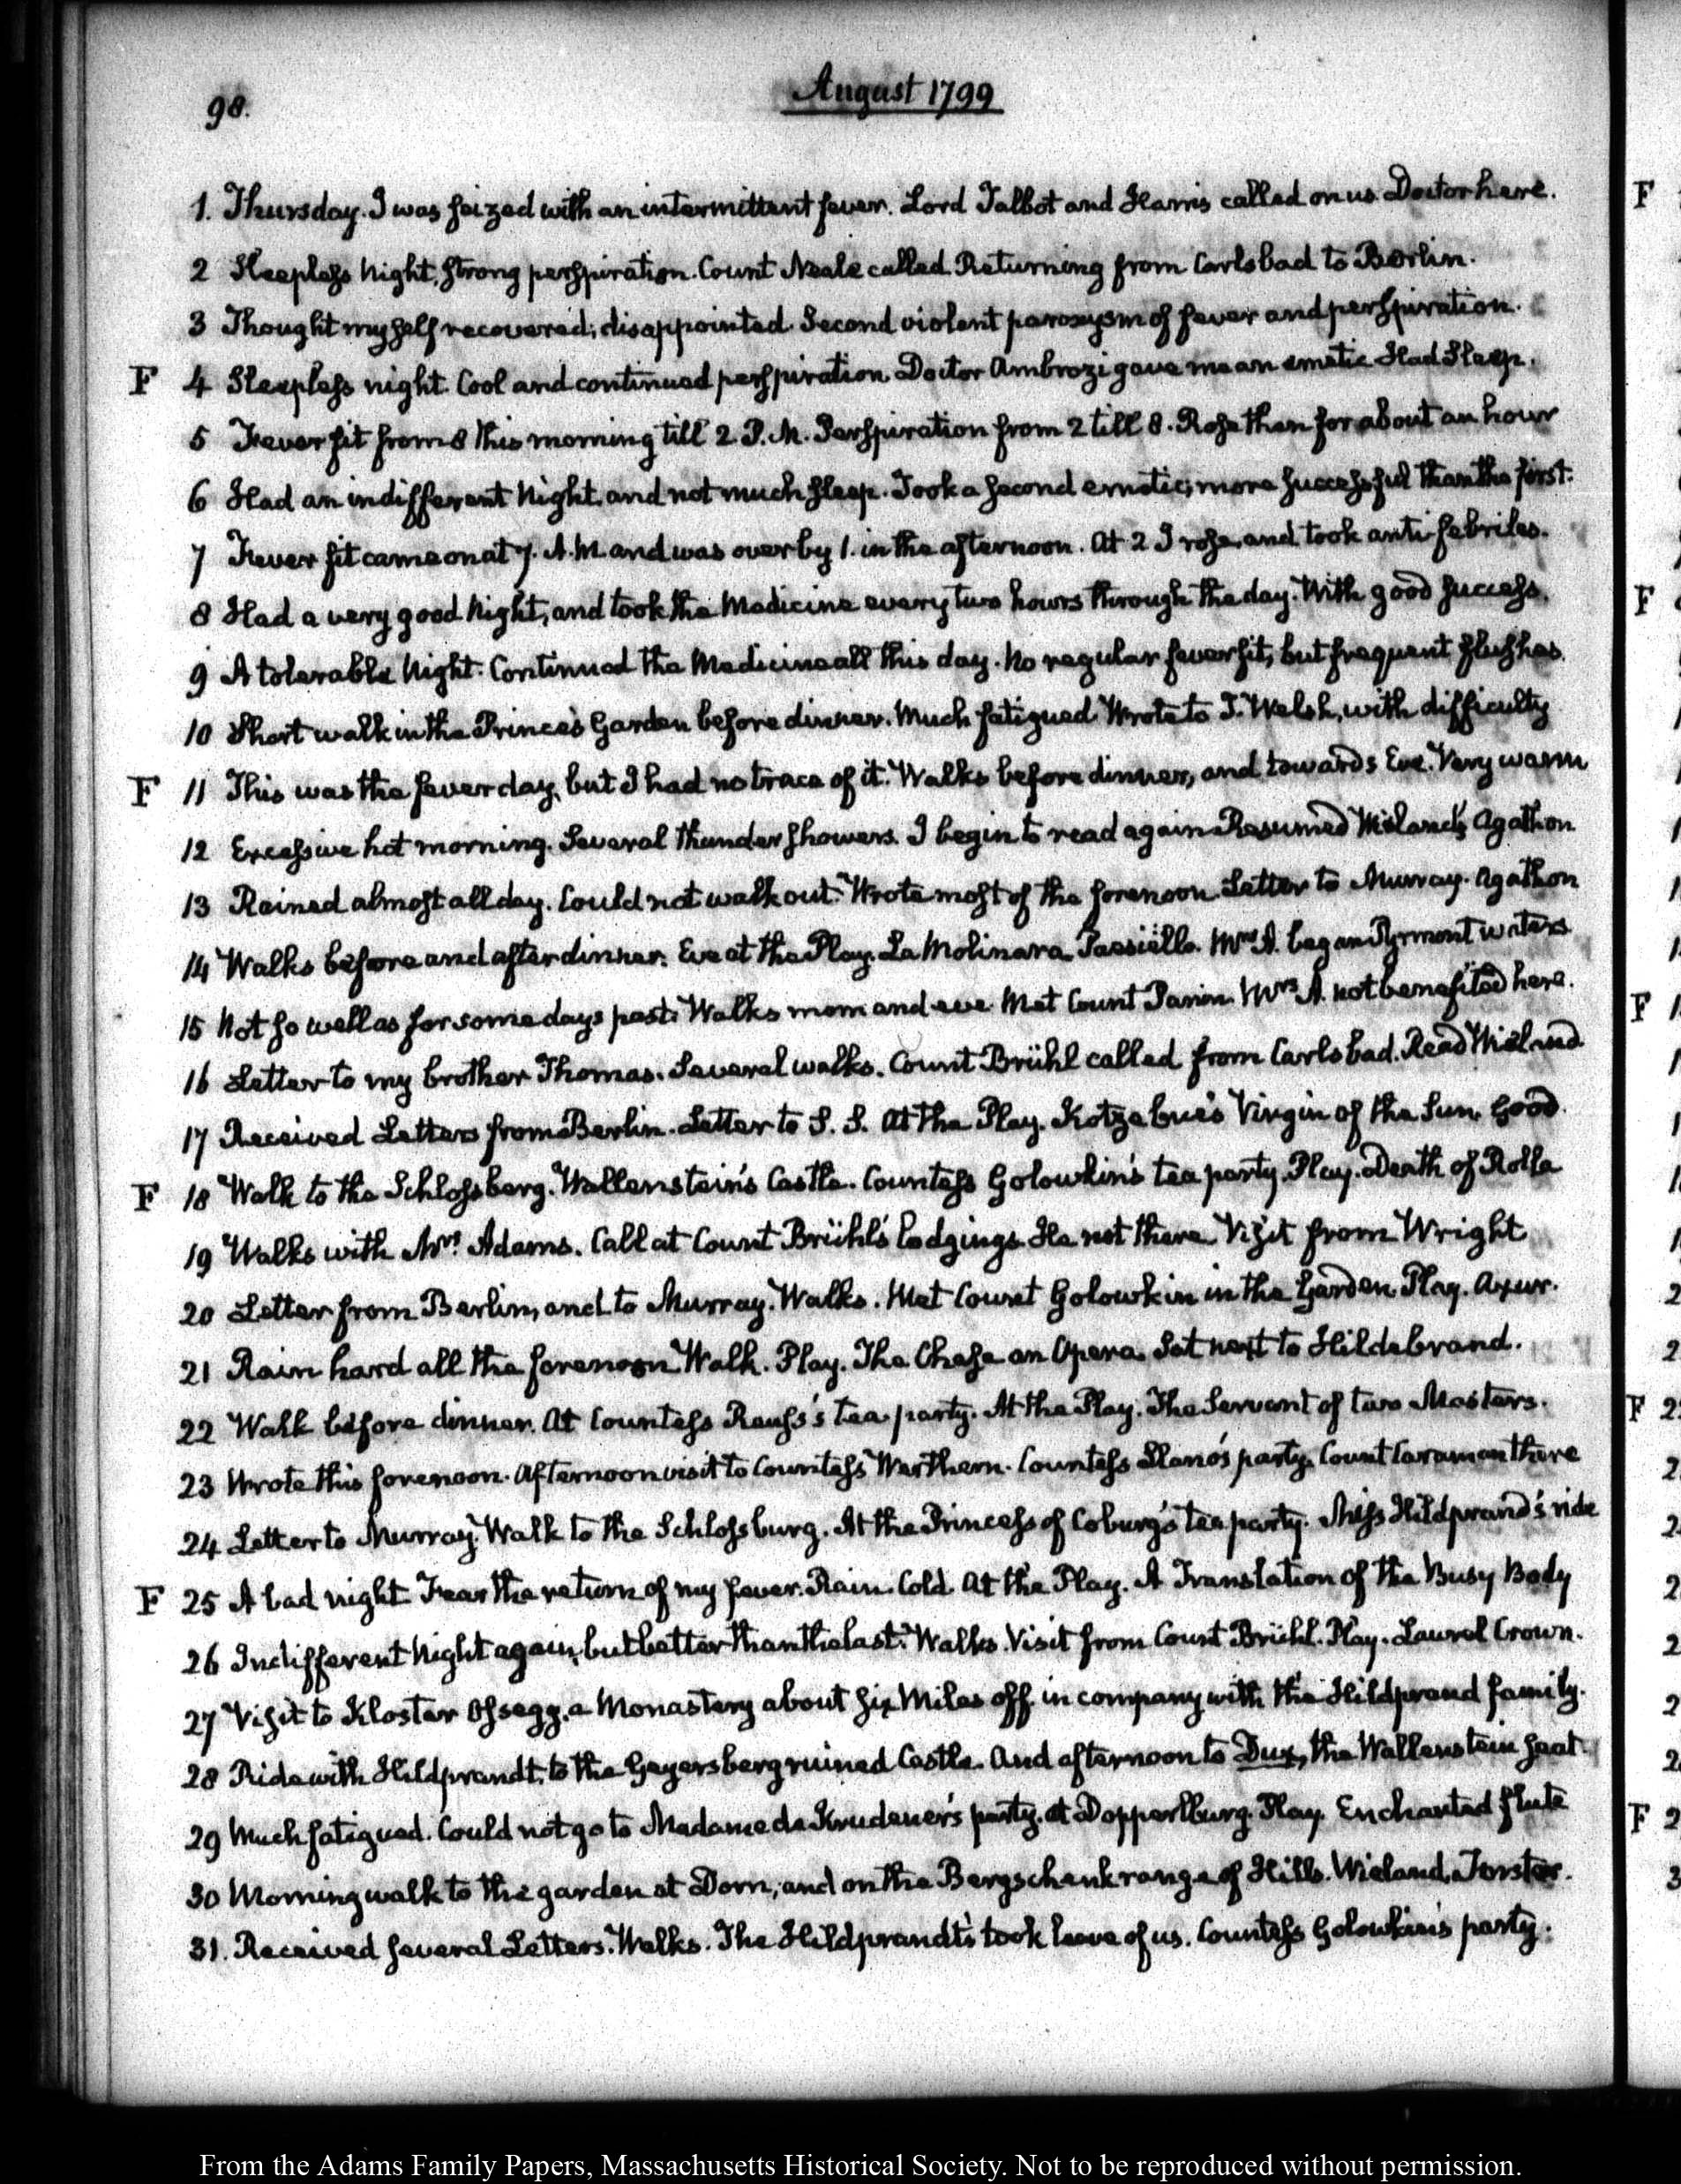 98.
August 1799
1. Thursday. I was seized with an intermittent fever. Lord Talbot and Harris called on us. Doctor here.
2 Sleepless Night, strong perspiration. Count Neale called. Returning from Carlsbad to Berlin.
3 Thought myself recovered; disappointed. Second violent paroxysm of fever and perspiration.
F 4 Sleepless night. Cool and continued perspiration Doctor Ambrozi gave me an emetic Had Sleep.
5 Fever fit from 8 this morning till 2. P.M. Perspiration from 2 till 8. Rose then for about an hour
6 Had an indifferent Night, and not much sleep. Took a second emetic; more successful than the first.
7 Fever fit came on at 7. A.M. and was over by 1. in the afternoon. At 2 I rose, and took anti febriles.
8 Had a very good Night, and took the Medicine every two hours through the day. With good success.
9 A tolerable Night. Continued the Medicine all this day. No regular fever fit, but frequent flushes.
10 Short walk in the Prince's Garden before dinner. Much fatigued. Wrote to T. Welsh, with difficulty
F 11 This was the fever day, but I had no trace of it. Walks before dinner, and towards Eve. Very warm
12 Excessive hot morning. Several thunder showers. I begin to read again Resumed Wieland's Agathon
13 Rained almost all day. Could not walk out. Wrote most of the forenoon Letter to Murray. Agathon
14 Walks before and after dinner. Eve at the Play. La Molinara. Paesiëllo. Mrs A. began Pyrmont waters
15 Not so well as for some days past. Walks morn and eve. Met Count Panin. Mrs A. not benefited here.
16 Letter to my brother Thomas. Several walks. Count Brühl called from Carlsbad. Read Wieland
17 Received Letters from Berlin. Letter to S. S. At the Play. Kotzebue's Virgin of the Sun. Good.
F 18 Walk to the Schlossberg. Wallenstein's Castle. Countess Golowkin's tea party. Play. Death of Rolla
19 Walks with Mrs. Adams. Call at Count Brühl's lodgings. He not there Visit from Wright
20 Letter from Berlin, and to Murray. Walks. Met Count Golowkin in the Garden. Play. Axur.
21 Rain hard all the forenoon Walk. Play. The Chase an Opera. Sat next to Hildebrand.
22 Walk before dinner. At Countess Reuss's tea party. At the Play. The Servant of two Masters.
23 Wrote this forenoon. Afternoon visit to Countess Werthern. Countess party. Count Caraman there
24 Letter to Murray. Walk to the Schlossburg. At the Princess of Coburg's tea party. Miss Hildprand's ride
F 25 A bad night Fear the return of my fever. Rain. Cold At the Play. A Translation of the Busy Body
26 Indifferent Night again, but better than the last. Walks. Visit from Count Brühl. Play. Laurel Crown.
27 Visit to Kloster Ossegg. a Monastery about six Miles off. in company with the Hildprand family.
28 Ride with Hildprandt, to the Geyersberg ruined Castle. And afternoon to Dux, the Wallenstein seat.
29 Much fatigued. Could not go to Madame de Krudener's party. at Dopperlburg. Play. Enchanted flute
30 Morning walk to the garden at Dorn, and on the Bergschenk range of Hills. Wieland,
31. Received several Letters. Walks. The Hildprandt's took leave of us. Countess Golowkin's party.
From the Adams Family Papers, Massachusetts Historical Society. Not to be reproduced without permission.